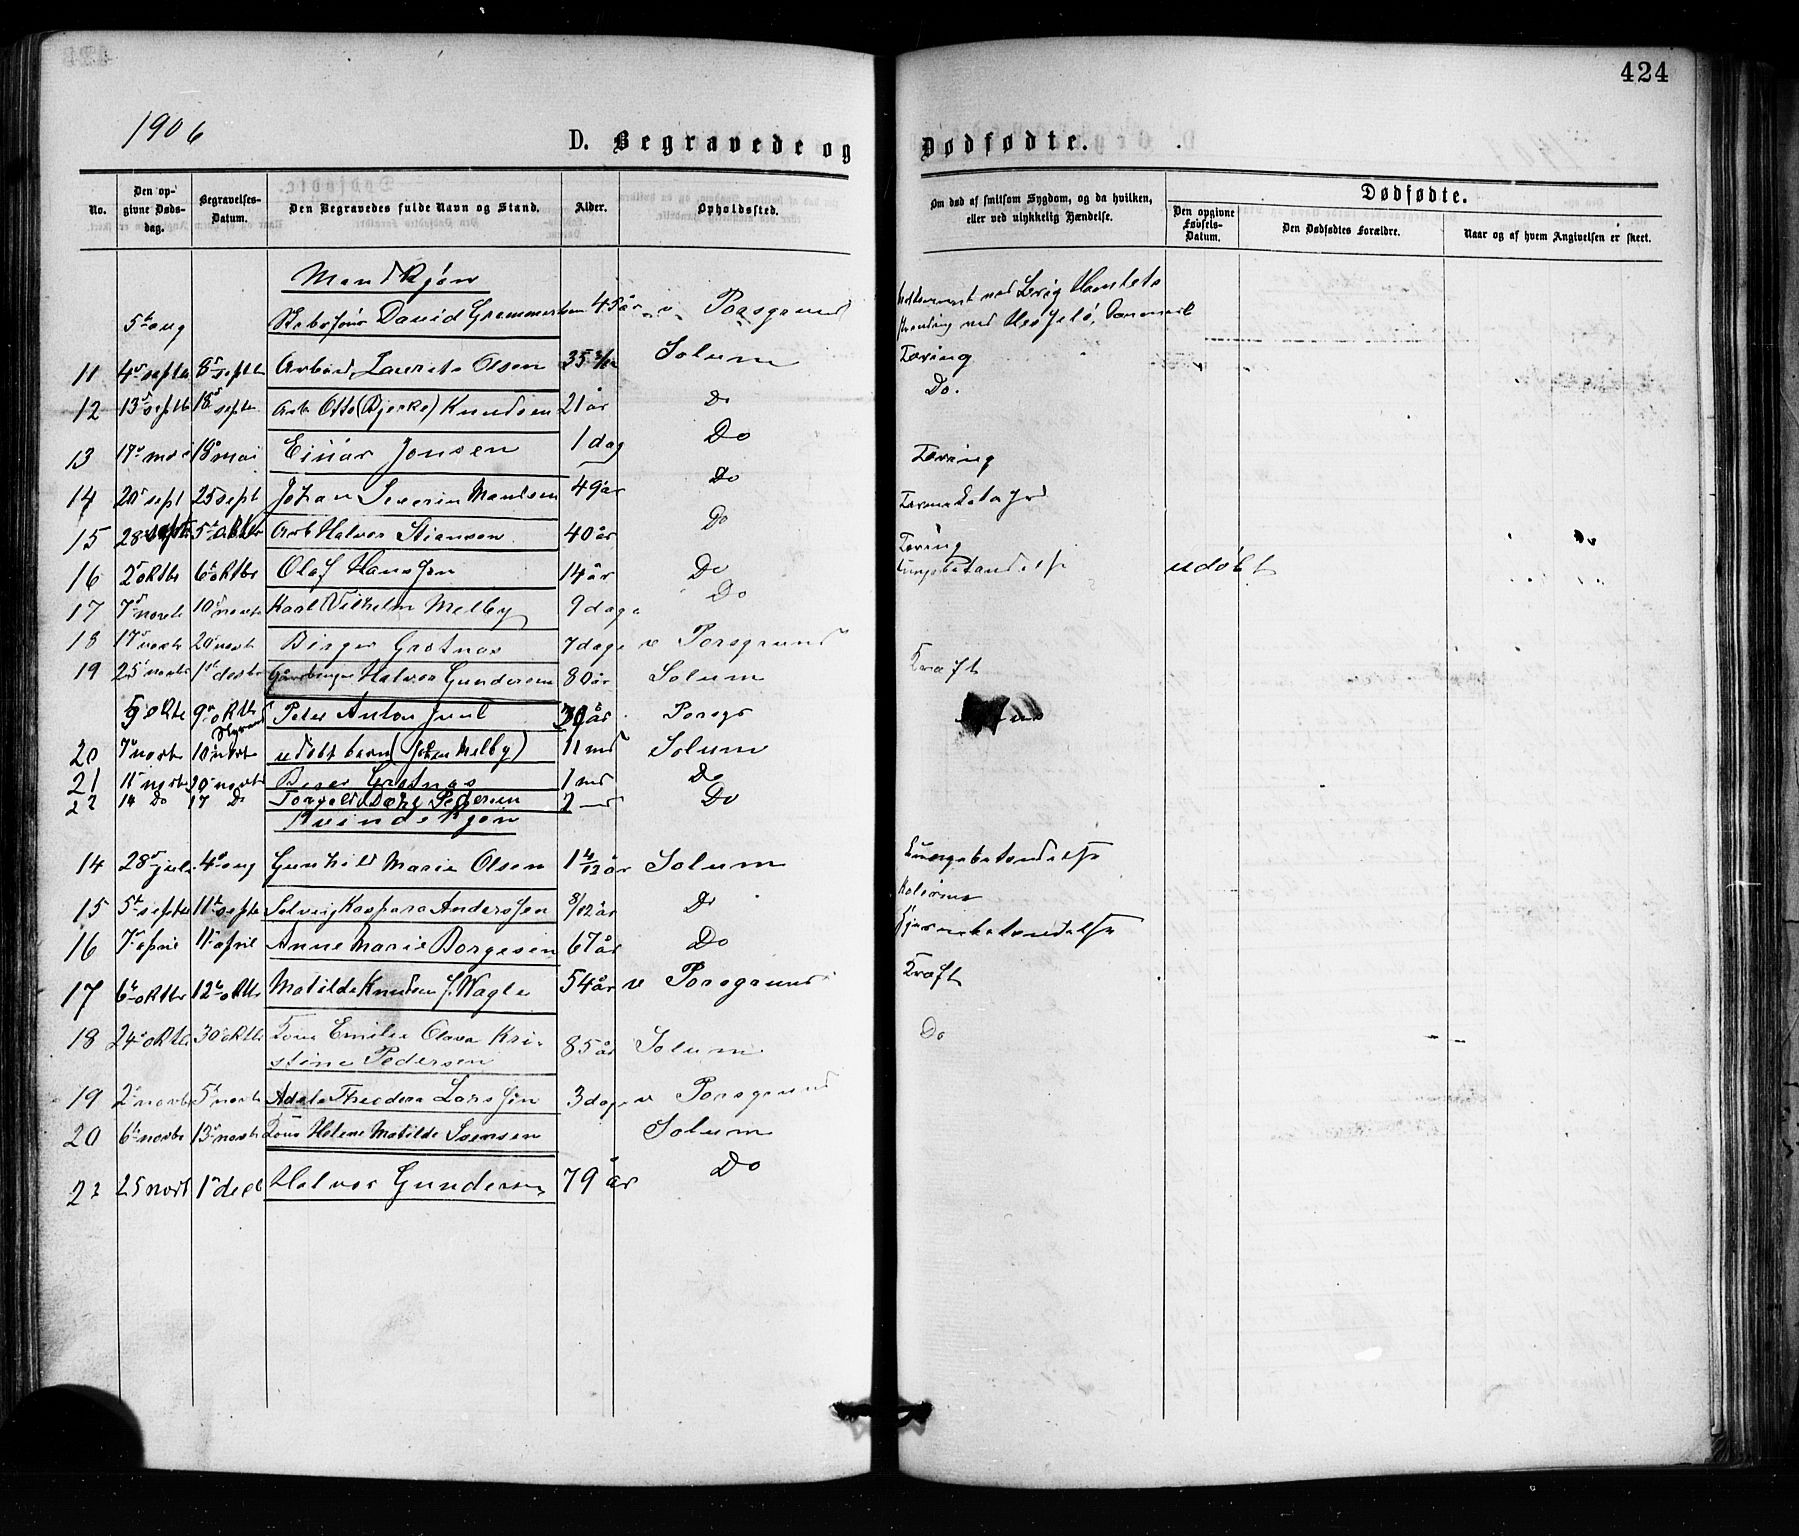 424
1906
D. Begravede og Dødfødte.
No. Den opgivne Dødsdag. Begravelses-Datum. Den Begravedes fulde Navn og Stand. Alder. Opholdssted. Om død af smitsom Sygdom, og da hvilken, eller ved ulykkelig Hændelse. Dødfødte.
Den opgivne Fødsels-Datum. Den Dødfødtes Forældre. Naar og af hvem Angivelsen er skeet.
Mandkjøn
5t aug David 45 år v Porsgrund ved Brig Hamlets
Stranding ved Danmark
11 4d septb 8d septb Laurits Olsen 35 Solum Tæring
12 13d septb 18d septb Arb Otto (Bjerke) Knudsen 21 år Do Do.
13 17d mai 19d mai Einar Jonsen 1 dag Do
14 20d sept 25 sept Johan Severin Madsen 49 år Do Tæring
15 28 sept 5t oktbr Arb Halvor Stiansen 40 år Do
16 2d oktbr 6t oktbr Olaf Hanssen 14 år Do Tæring
17 7d novb 10d novb Karl Vilhelm Melby 9 dage Do Lungebetændelse udøbt
18 17d novb 20d novb Birger Grotnæs 7 dage v Porsgrund
19 25d novbr 1st desbr Halvor Gundersen 80 år Solum Kræft
5 oktb 9d oktb Peter Anton Juul år Porsgr
20 7d novb 10 novbr udøbt barn ( Melby) 11 md Solum
21 11 novbr 20 novbr Grotnæs 1 md Do
22 14 Do 17 Do Pedersen 2 md Do
Kvindekjøn
14 28d juli 4d aug Gunhild Marie Olsen 1 4/12 år Solum Lungebetændelse
15 5t septbr 11t septbr Solveig Kaspara Anderssen 8/12 år Do Kolerine
16 7d april 11t april Anne Marie Borgesen 67 år Do
17 6t oktbr 12t oktbr Matilde Knudsen f. Wagle 54 år v Porsgrund Kræft
18 24d oktb 30 oktb Kone Emilie Olava Kristine Pedersen 85 år Solum Do
19 2d novbr 5t novbr Adele Theodora Larssen 3 dage v Porsgrund
20 6t novbr 13d novbr Kone Helene Matilde Svensen Solum
22 25 novb 1st decb Halvor Gundersen 79 år Do